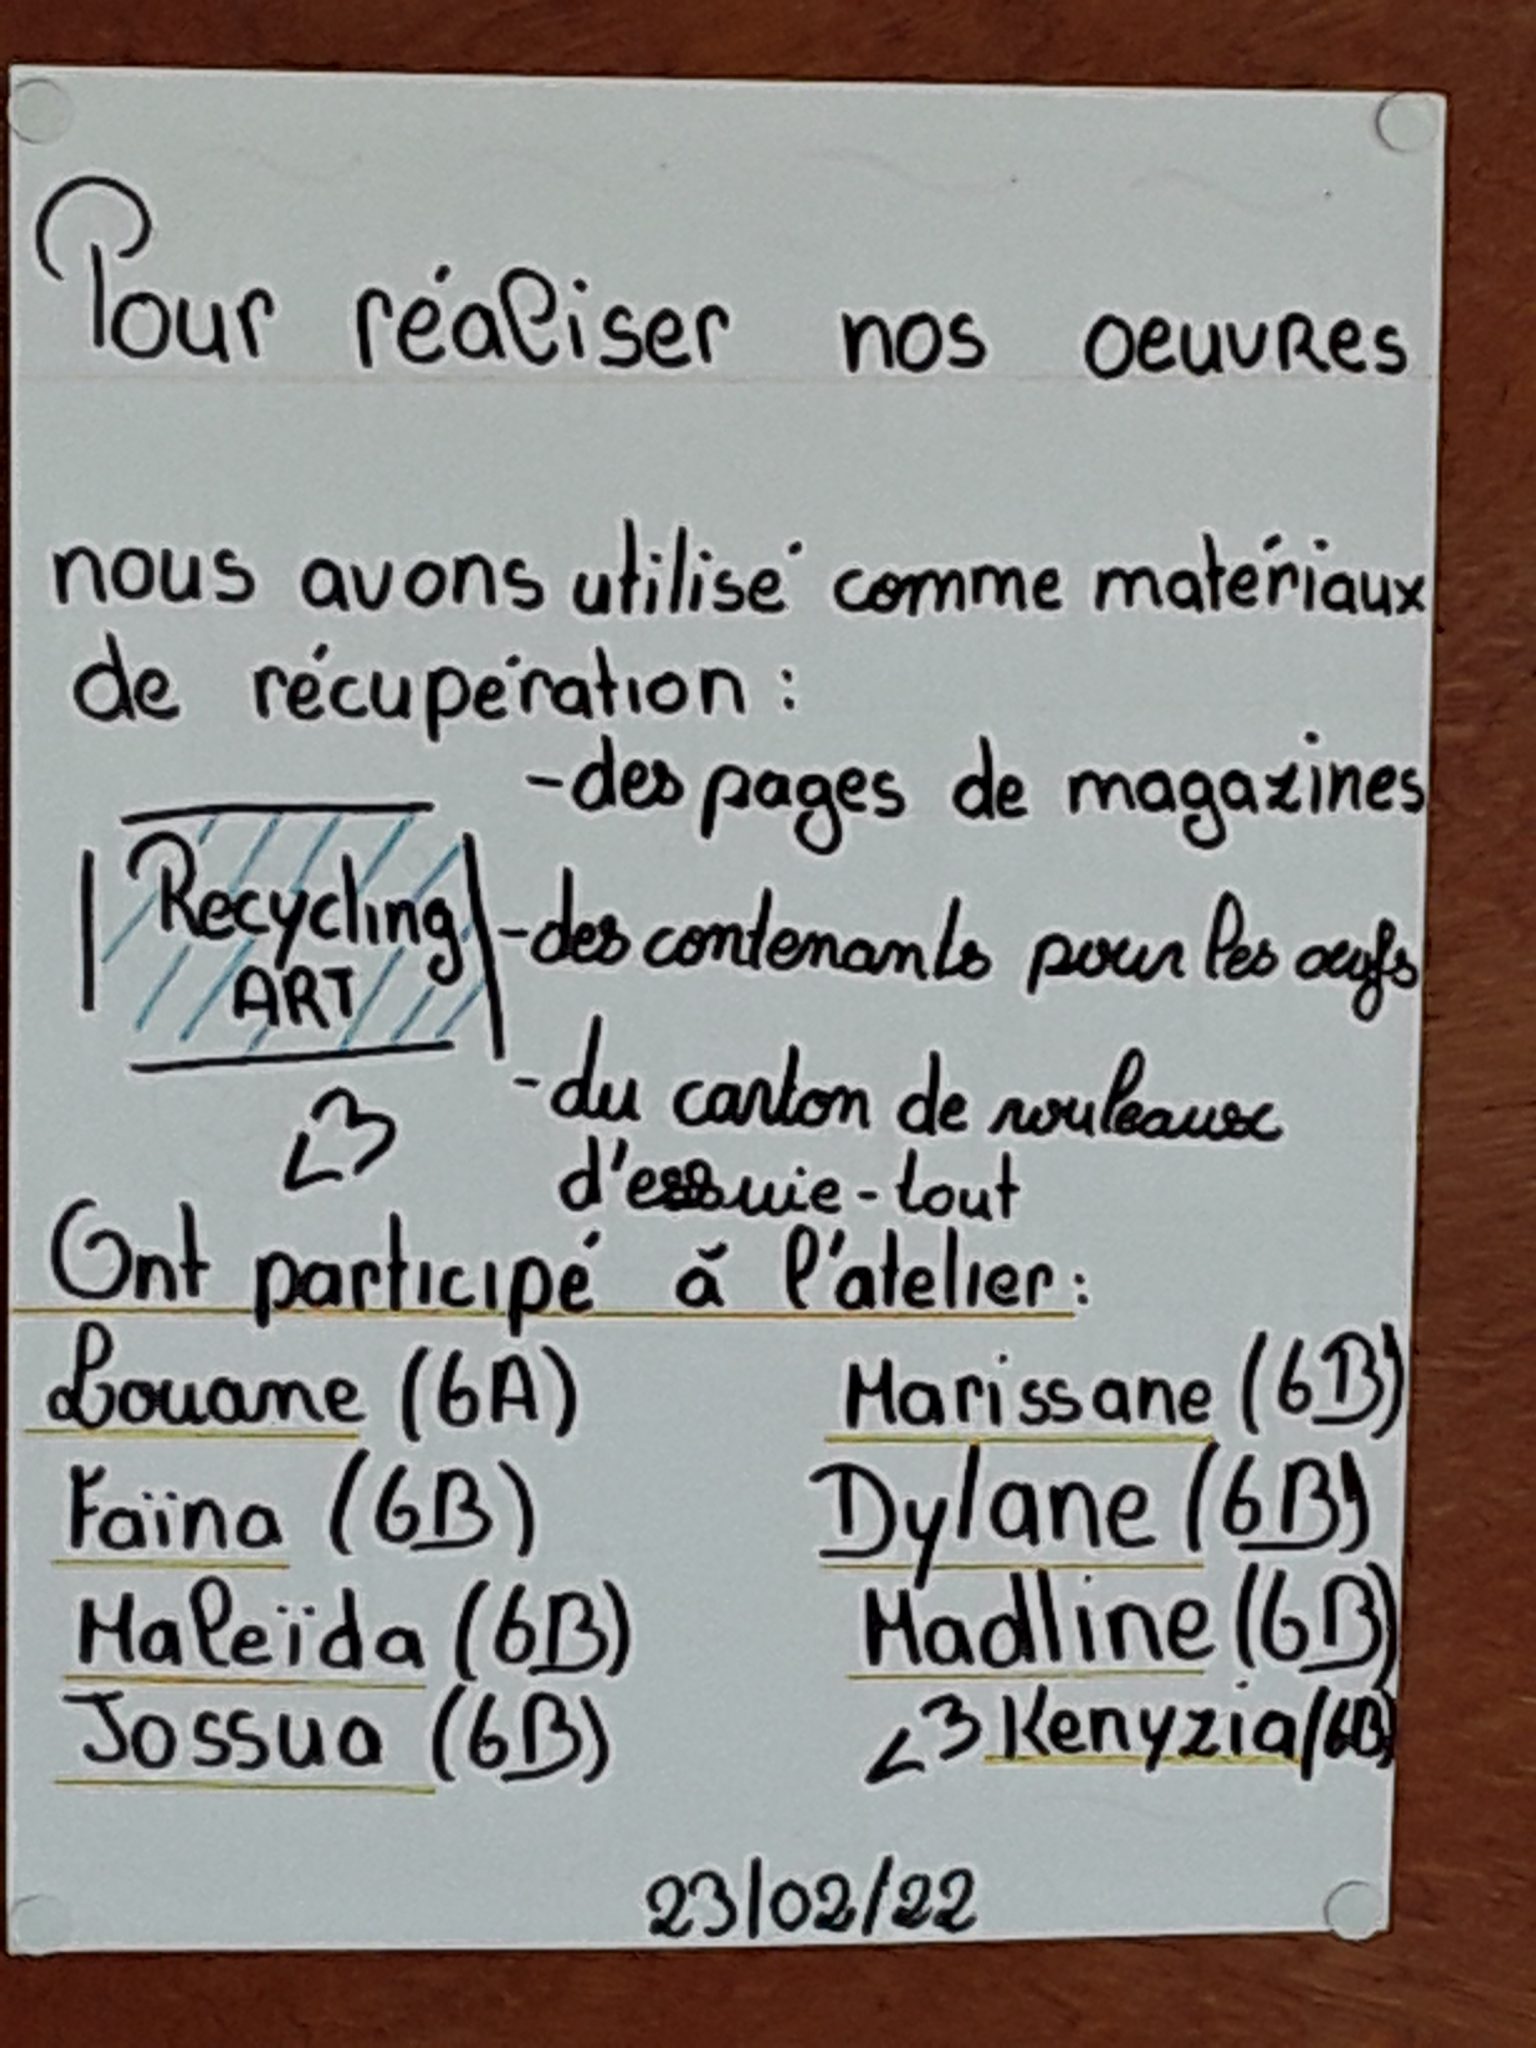 Pour réaliser nos oeuvres
nous avons utilisé comme matériaux
de récupération :
-des pages de magazines
Recycling
ART
-des contenants pour les oeufs
-du carton de rouleaux
d'essuie-tout
<3
Ont participé à l'atelier :
Louane (6A)
Marissane (6B)
Faïna (6B)
Dylane (6B)
Maleïda (6B)
Madline (6B)
Jossua (6B)
<3 Kenyzia (6B)
23/02/22